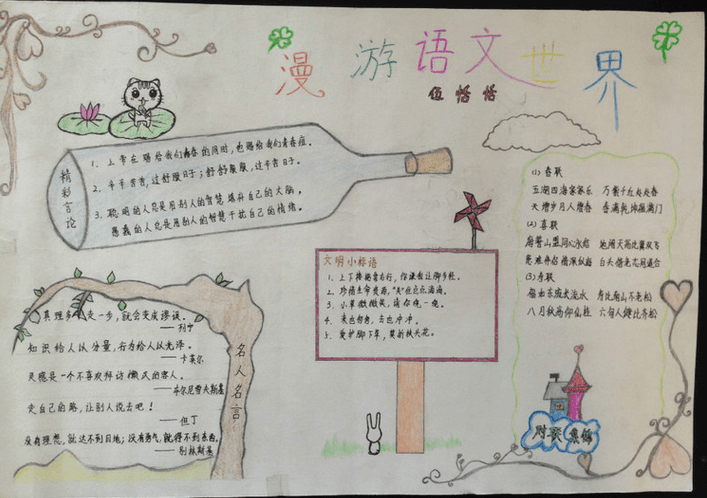 漫游语文世界
伍恬恬
精彩言论
1、上帝在赐给我们青春的同时,也赐给我们青春痘。
2、辛辛苦苦,过舒服日子;舒舒服服,过辛苦日子。
3、聪明的人总是用别人的智慧填补自己的大脑,
愚蠢的人总是用别人的智慧干扰自己的情绪。
文明小标语
1、上下楼梯靠右行,你谦我让脚步轻。
2、珍惜生命资源,
3、小草微微笑,请你绕一绕。
4、来也匆匆,去也冲冲。
5、爱护脚下草,莫折枝头花。
(1)春联
五湖四海家家乐 万紫千红处处春
天增岁月人增寿 春满乾坤福满门
(2)喜联
海誓山盟同心永结 地阔天高比翼双飞
恩爱伴侣情深似海 白头偕老志同道合
(3)寿联
福如东流水 寿比南山不老松
对联集锦
名人名言
真理多走一步,就会变成谬误。
——列宁
知识给人以分量,
——卡莱尔
灵感是一个不喜欢拜访懒汉的客人。
——车尔尼雪夫斯基
走自己的路,让别人说去吧!
——但丁
没有理想,就达不到目地;没有勇气,就得不到东西。
——别林斯基